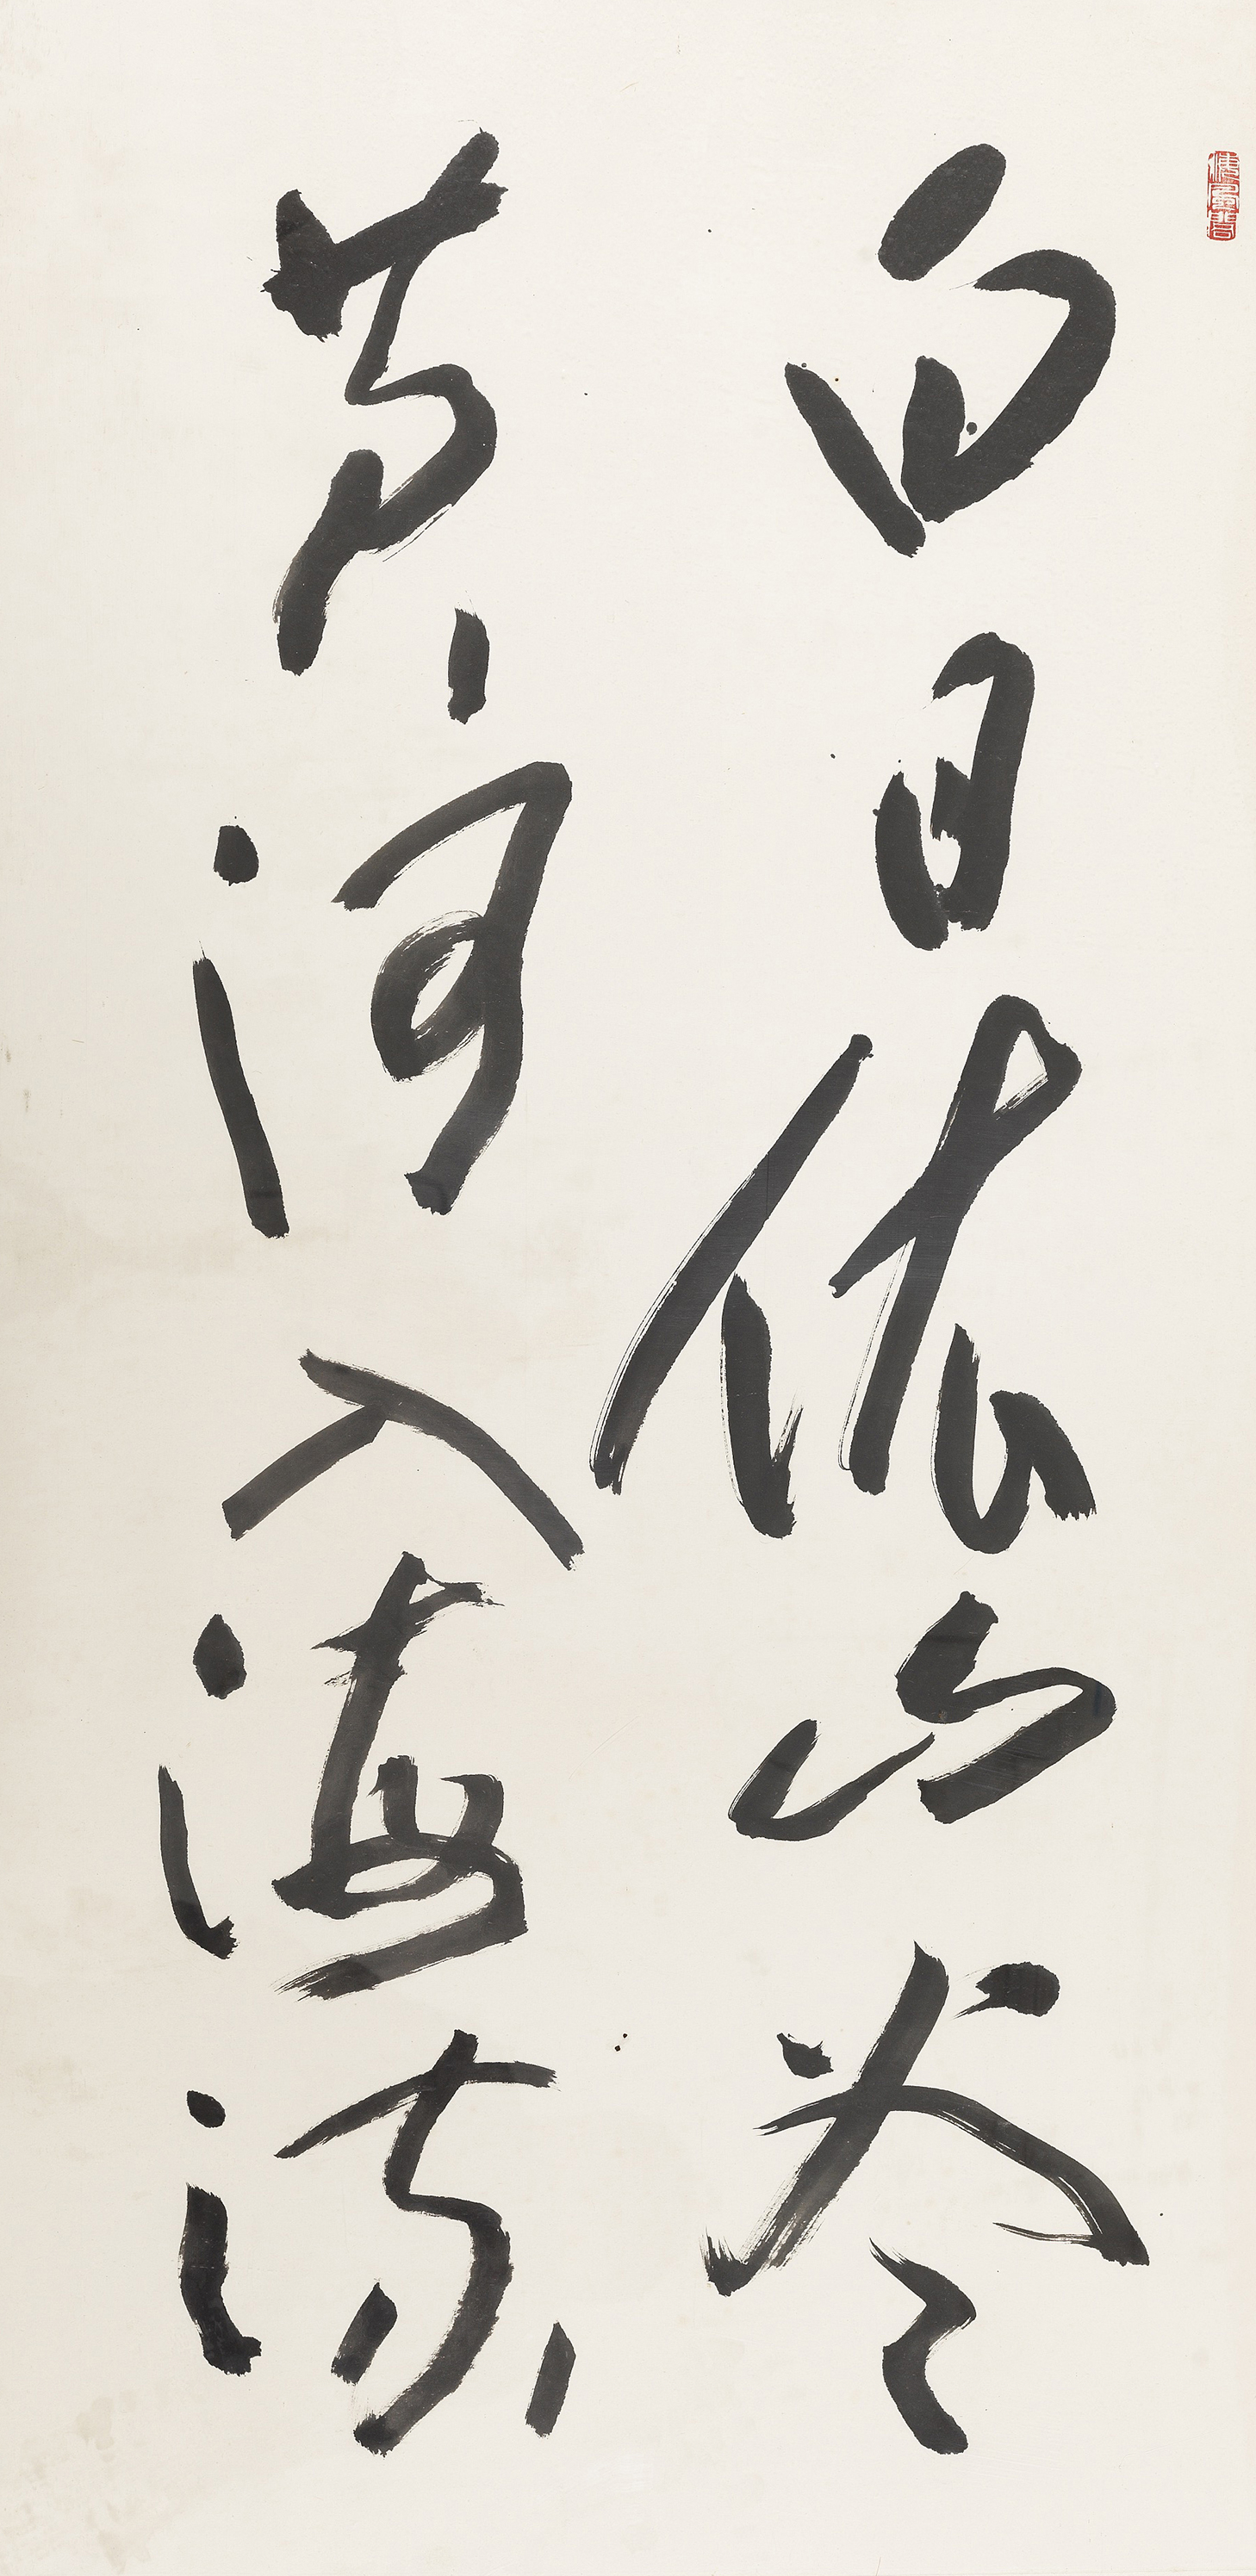 白日依山尽
黄河入海流